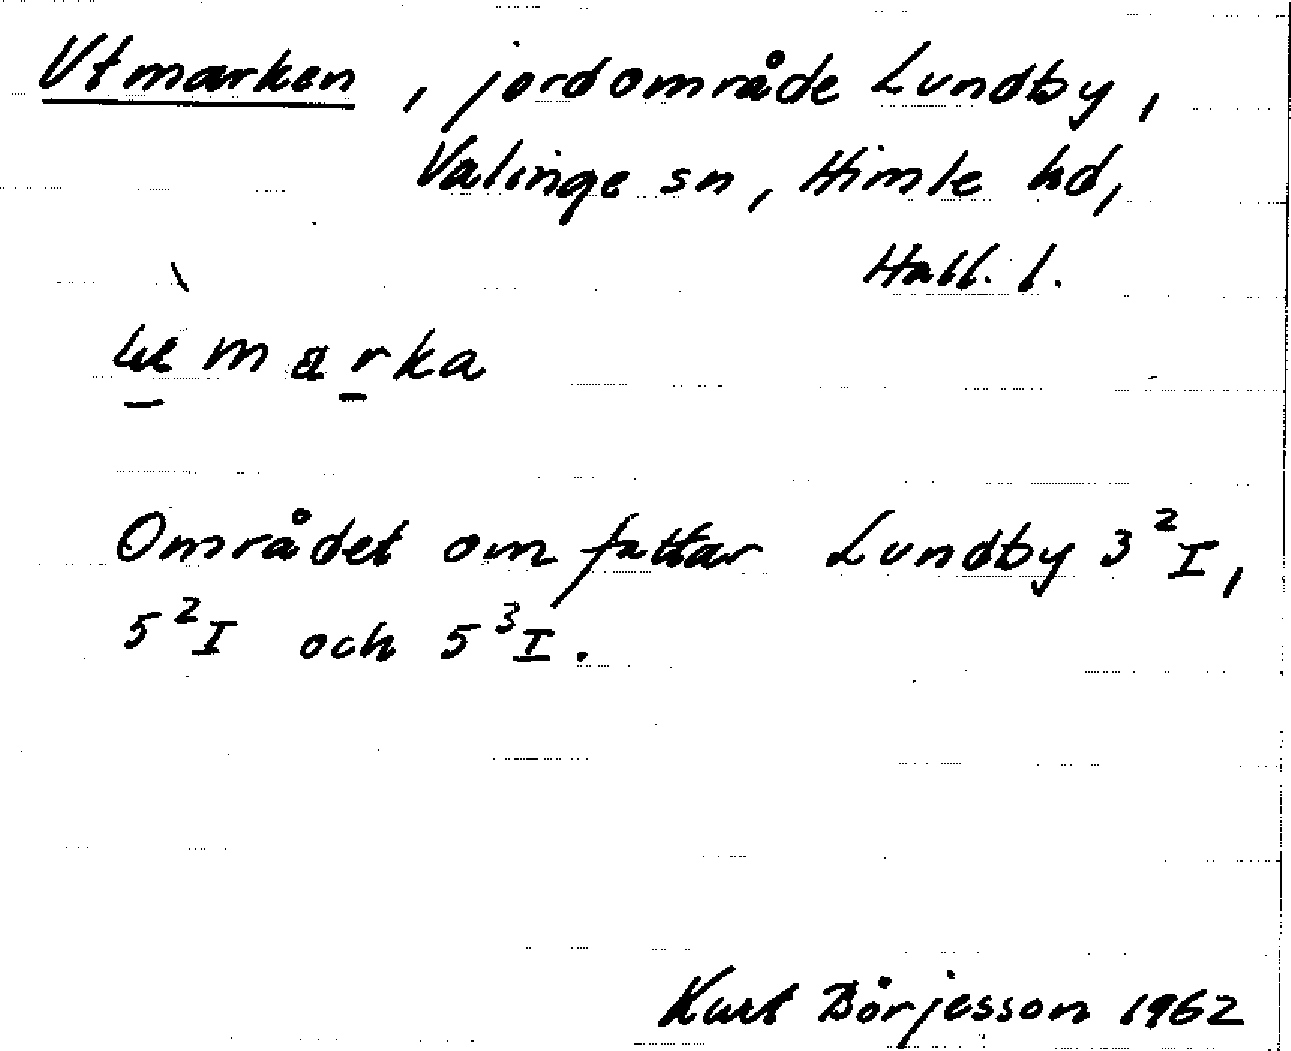 Utmarken, jordområde Lundby,
Valinge sn, Himle hd,
Hall. l.
marka
Området omfattar Lundby 3²I,
5²I och 5³I.
Kurt Börjesson 1962